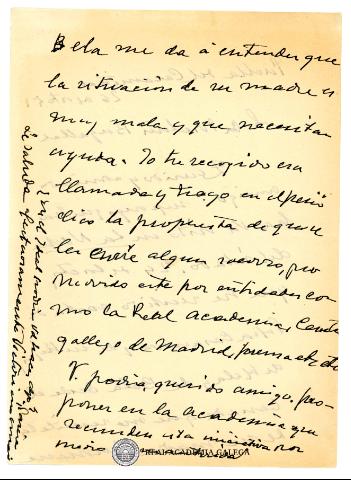 Bela me da á entender que
la situación de su madre es
muy mala y que necesitan
ayuda. Yo he recogido esa
llamada y hago en el perió
dico la propuesta de que se
les envíe algun socorro, pro
movido este por entidades co
mo la Real Academia, Centro
gallego de Madrid, prensa etc etc
V. podría, querido amigo, pro-
poner en la Academia que
secunden esta iniciativa por
medio
REAL ACADEMIA GALLEGA
le saluda afectuosamente